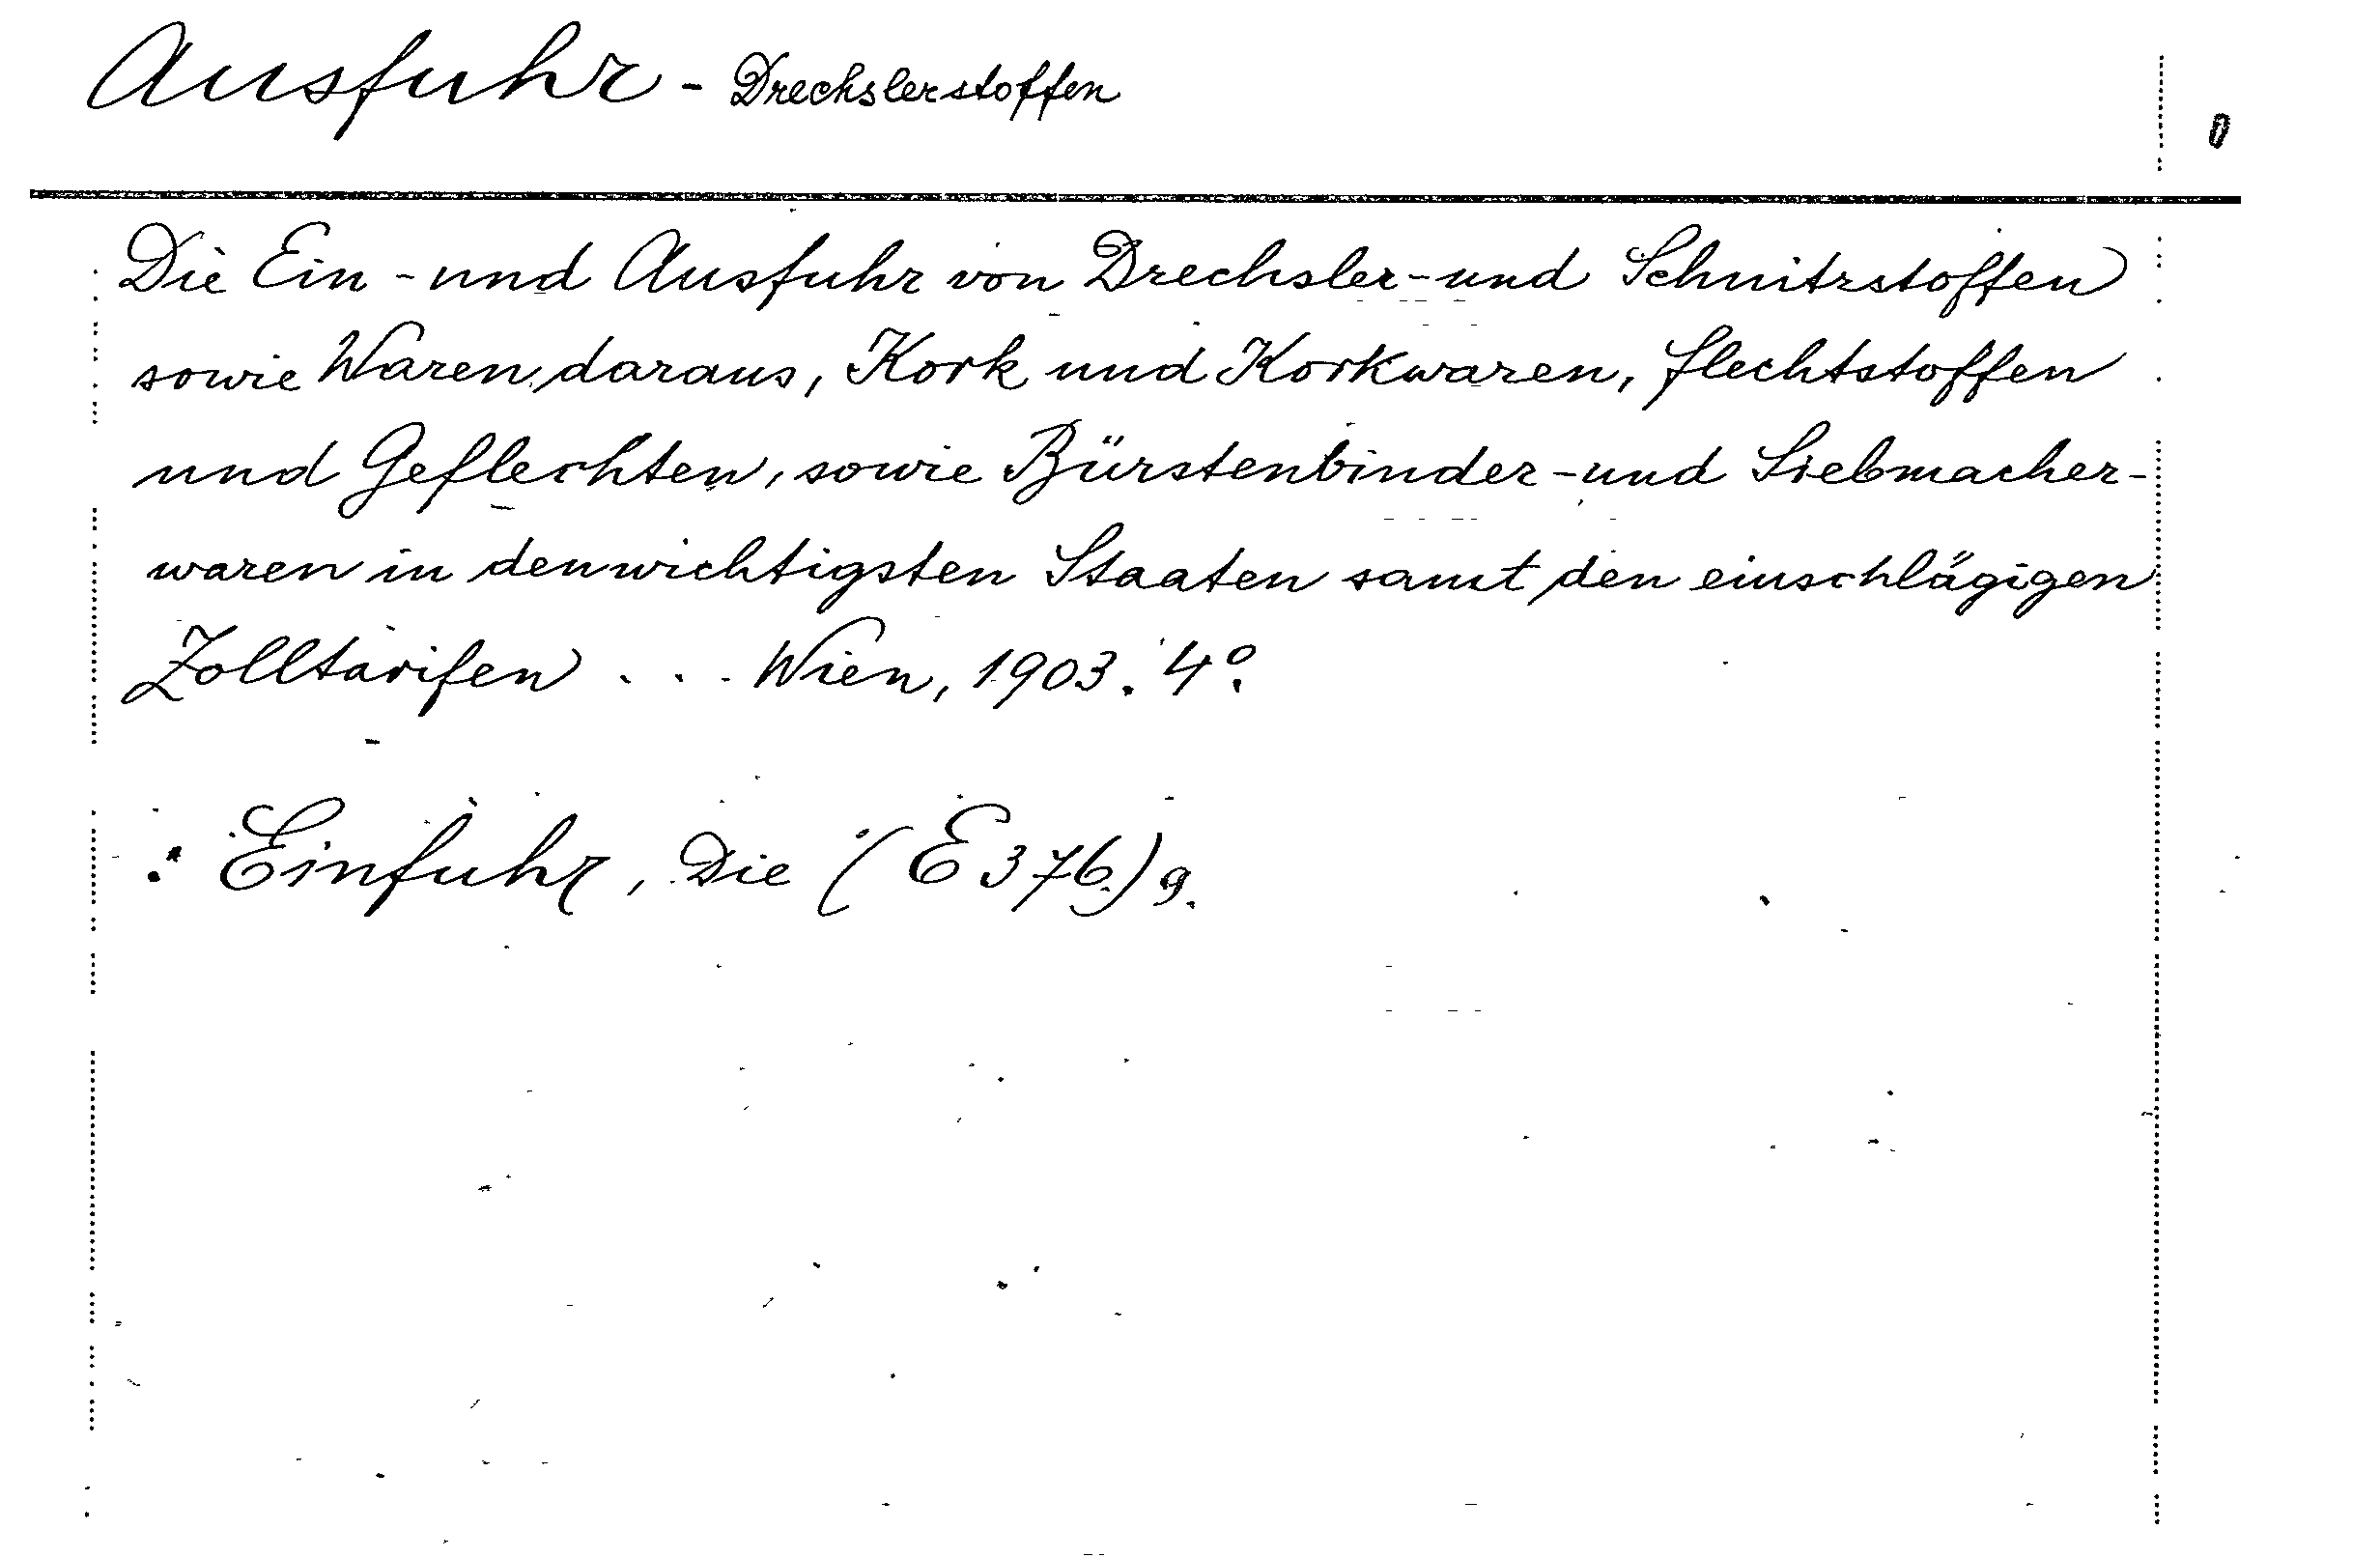 Ausfuhr - Drechslerstoffen
Die Ein- und Ausfuhr von Drechsler- und Schnitzstoffen
sowie Waren daraus, Kork und Korkwaren, Flechtstoffen
und Geflechten, sowie Bürstenbinder- und Siebmacher-
waren in den wichtigsten Staaten samt den einschlägigen
Zolltarifen . . . Wien, 1903. 4°.
: Einfuhr, Die (E 376) 9.